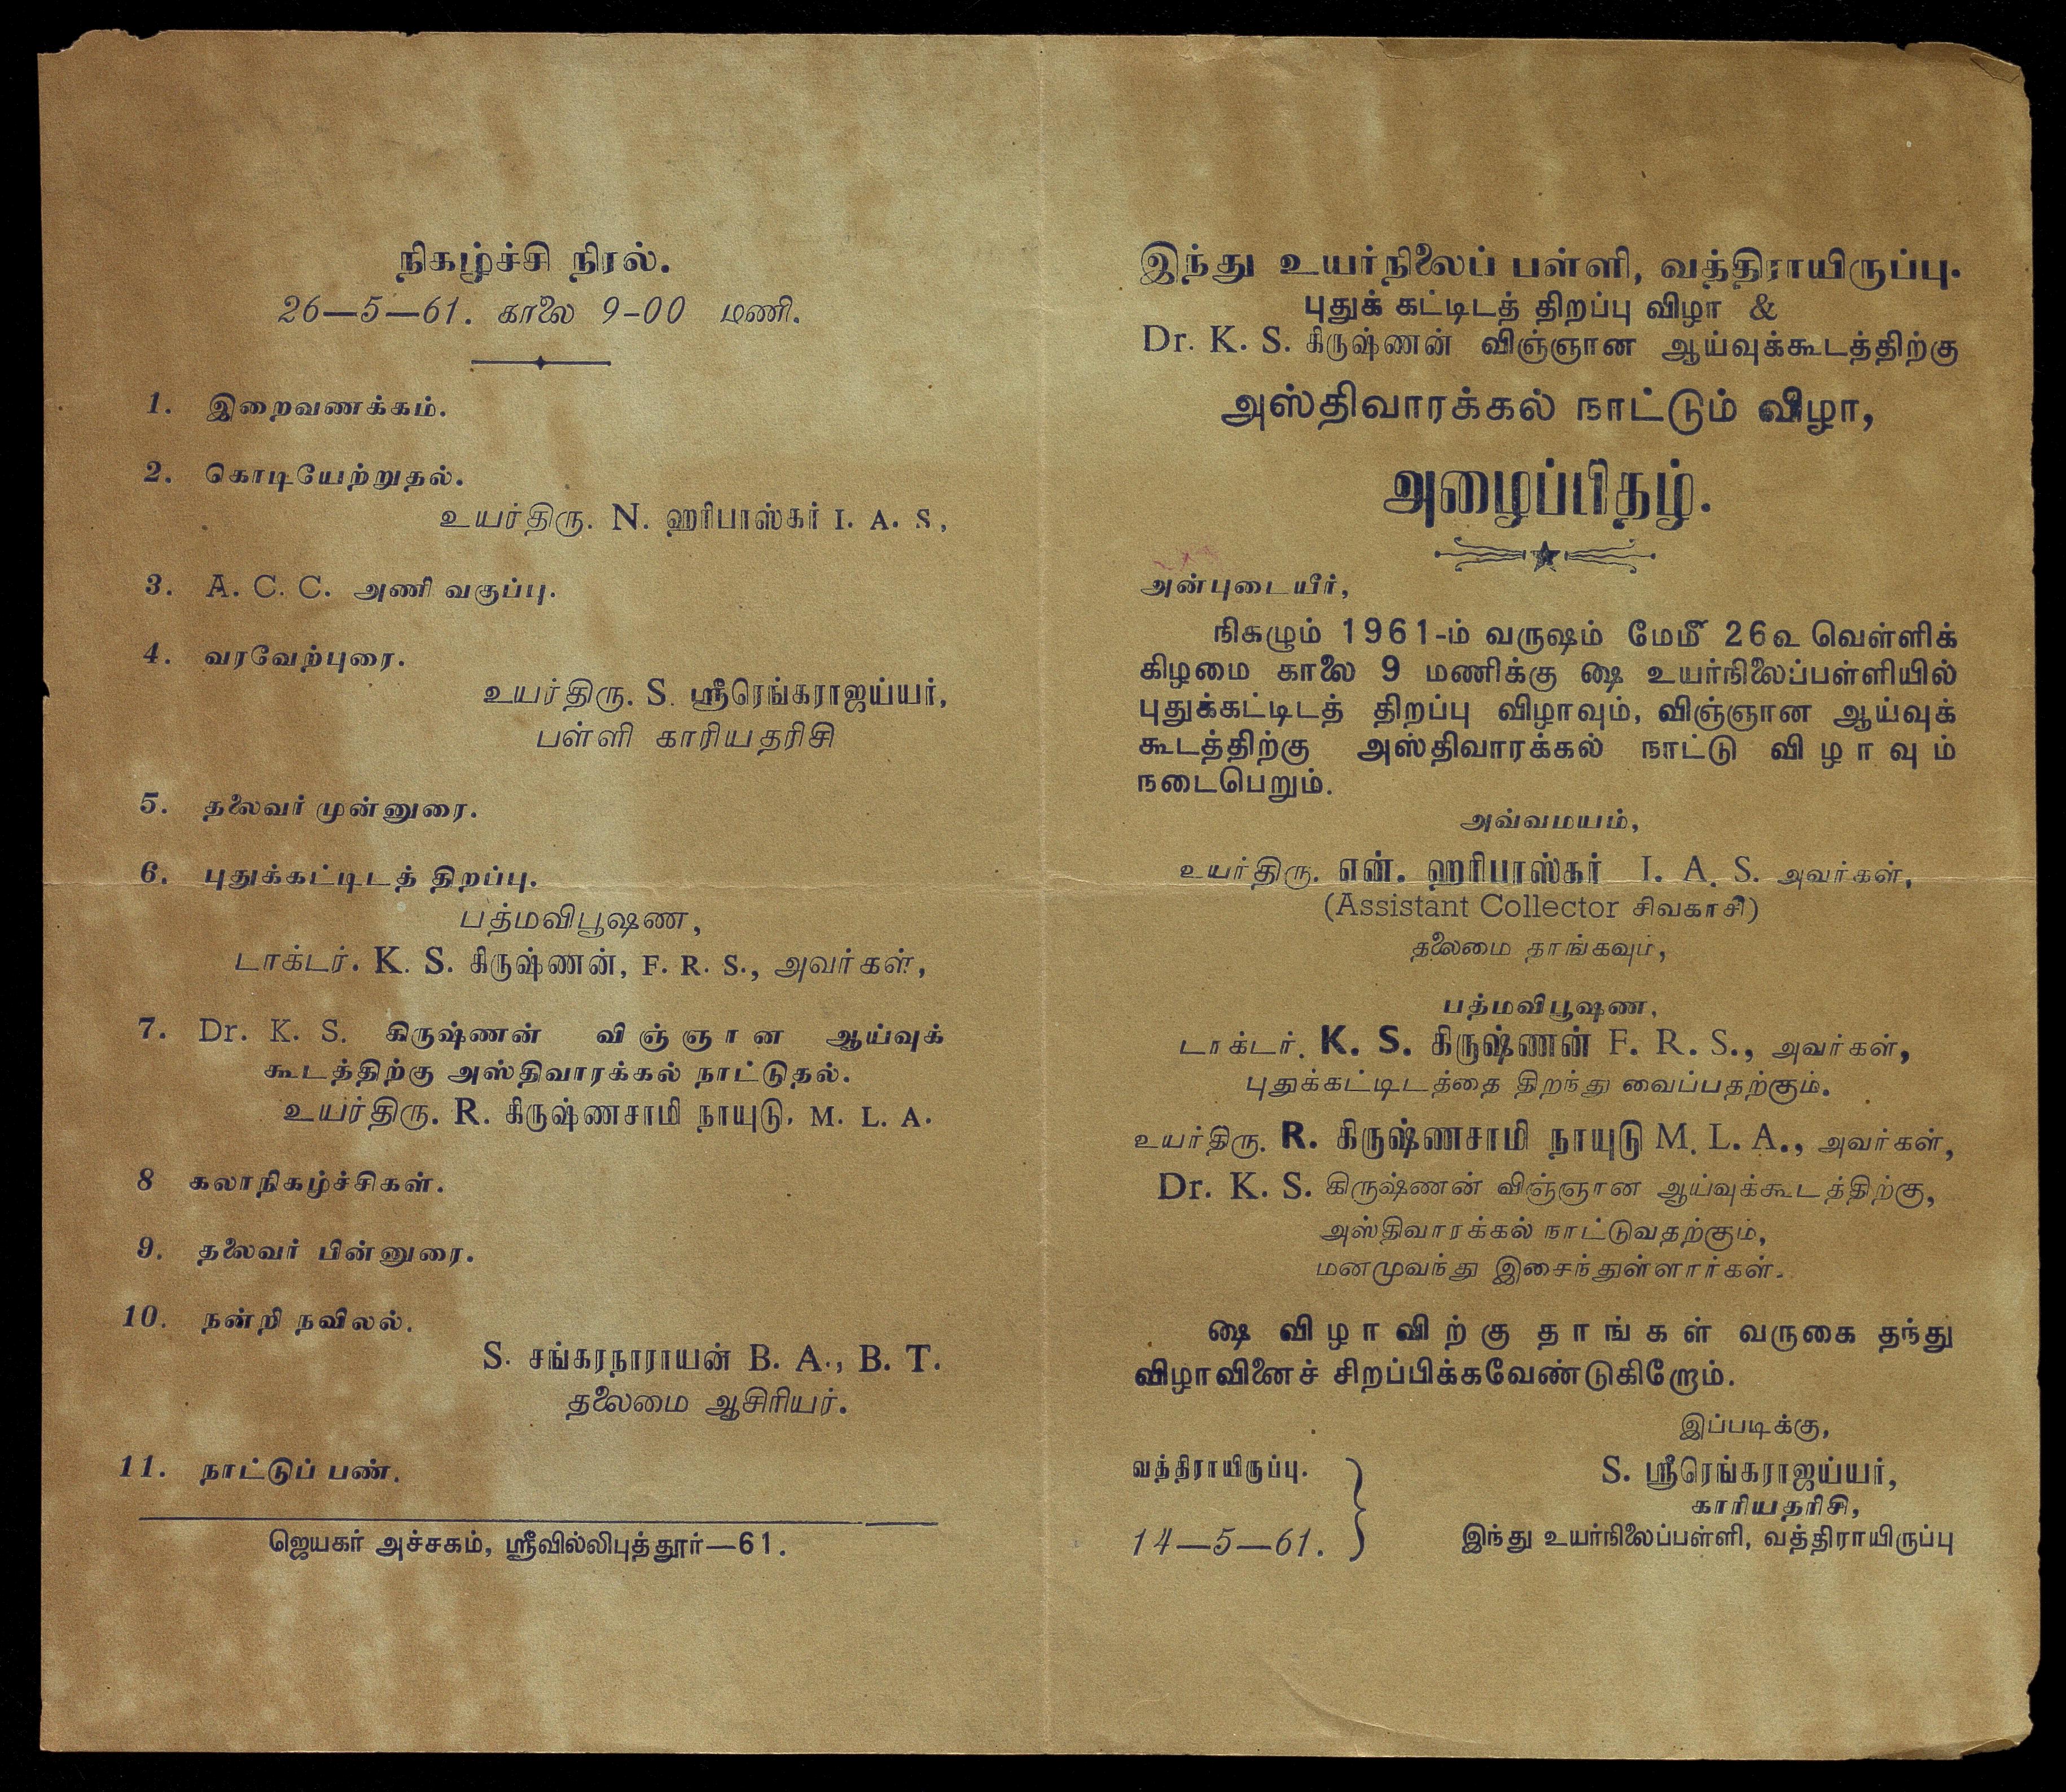 நிகழ்ச்சி நிரல்.
26—5—61. காலை 9-00 மணி.
1. இறைவணக்கம்.
2. கொடியேற்றுதல்.
உயர்திரு. N. ஹரிபாஸ்கர் I. A. S,
3. A. C. C. அணி வகுப்பு.
4. வரவேற்புரை.
உயர்திரு. S. ஸ்ரீரெங்கராஜய்யர்,
பள்ளி காரியதரிசி
5. தலைவர் முன்னுரை.
6. புதுக்கட்டிடத் திறப்பு.
பத்மவிபூஷண,
டாக்டர். K. S. கிருஷ்ணன், F. R. S., அவர்கள்,
7. Dr. K. S. கிருஷ்ணன் விஞ்ஞான ஆய்வுக்
கூடத்திற்கு அஸ்திவாரக்கல் நாட்டுதல்.
உயர்திரு. R. கிருஷ்ணசாமி நாயுடு, M. L. A.
8 கலாநிகழ்ச்சிகள்.
9. தலைவர் பின்னுரை.
10. நன்றி நவிலல்.
S. சங்கரநாராயன் B. A., B. T.
தலைமை ஆசிரியர்.
11. நாட்டுப் பண்.
ஜெயகர் அச்சகம், ஸ்ரீவில்லிபுத்தூர்—61.
இந்து உயர்நிலைப் பள்ளி, வத்திராயிருப்பு.
புதுக் கட்டிடத் திறப்பு விழா &
Dr. K. S. கிருஷ்ணன் விஞ்ஞான ஆய்வுக்கூடத்திற்கு
அஸ்திவாரக்கல் நாட்டும் விழா,
அழைப்பிதழ்.
அன்புடையீர்,
நிகழும் 1961-ம் வருஷம் மே௴ 26௳ வெள்ளிக்
கிழமை காலை 9 மணிக்கு ௸ உயர்நிலைப்பள்ளியில்
புதுக்கட்டிடத் திறப்பு விழாவும், விஞ்ஞான ஆய்வுக்
கூடத்திற்கு அஸ்திவாரக்கல் நாட்டு விழாவும்
நடைபெறும்.
அவ்வமயம்,
உயர்திரு. என். ஹரிபாஸ்கர் I. A. S. அவர்கள்,
(Assistant Collector சிவகாசி)
தலைமை தாங்கவும்,
பத்மவிபூஷண,
டாக்டர். K. S. கிருஷ்ணன் F. R. S., அவர்கள்,
புதுக்கட்டிடத்தை திறந்து வைப்பதற்கும்.
உயர்திரு. R. கிருஷ்ணசாமி நாயுடு M. L. A., அவர்கள்,
Dr. K. S. கிருஷ்ணன் விஞ்ஞான ஆய்வுக்கூடத்திற்கு,
அஸ்திவாரக்கல் நாட்டுவதற்கும்,
மனமுவந்து இசைந்துள்ளார்கள்.
௸ விழாவிற்கு தாங்கள் வருகை தந்து
விழாவினைச் சிறப்பிக்கவேண்டுகிறோம்.
இப்படிக்கு,
வத்திராயிருப்பு. S. ஸ்ரீரெங்கராஜய்யர்,
காரியதரிசி,
14—5—61. இந்து உயர்நிலைப்பள்ளி, வத்திராயிருப்பு